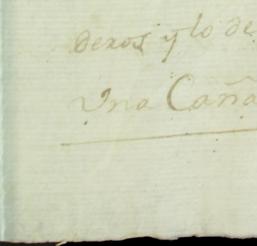 deros y lo de
Una Caña